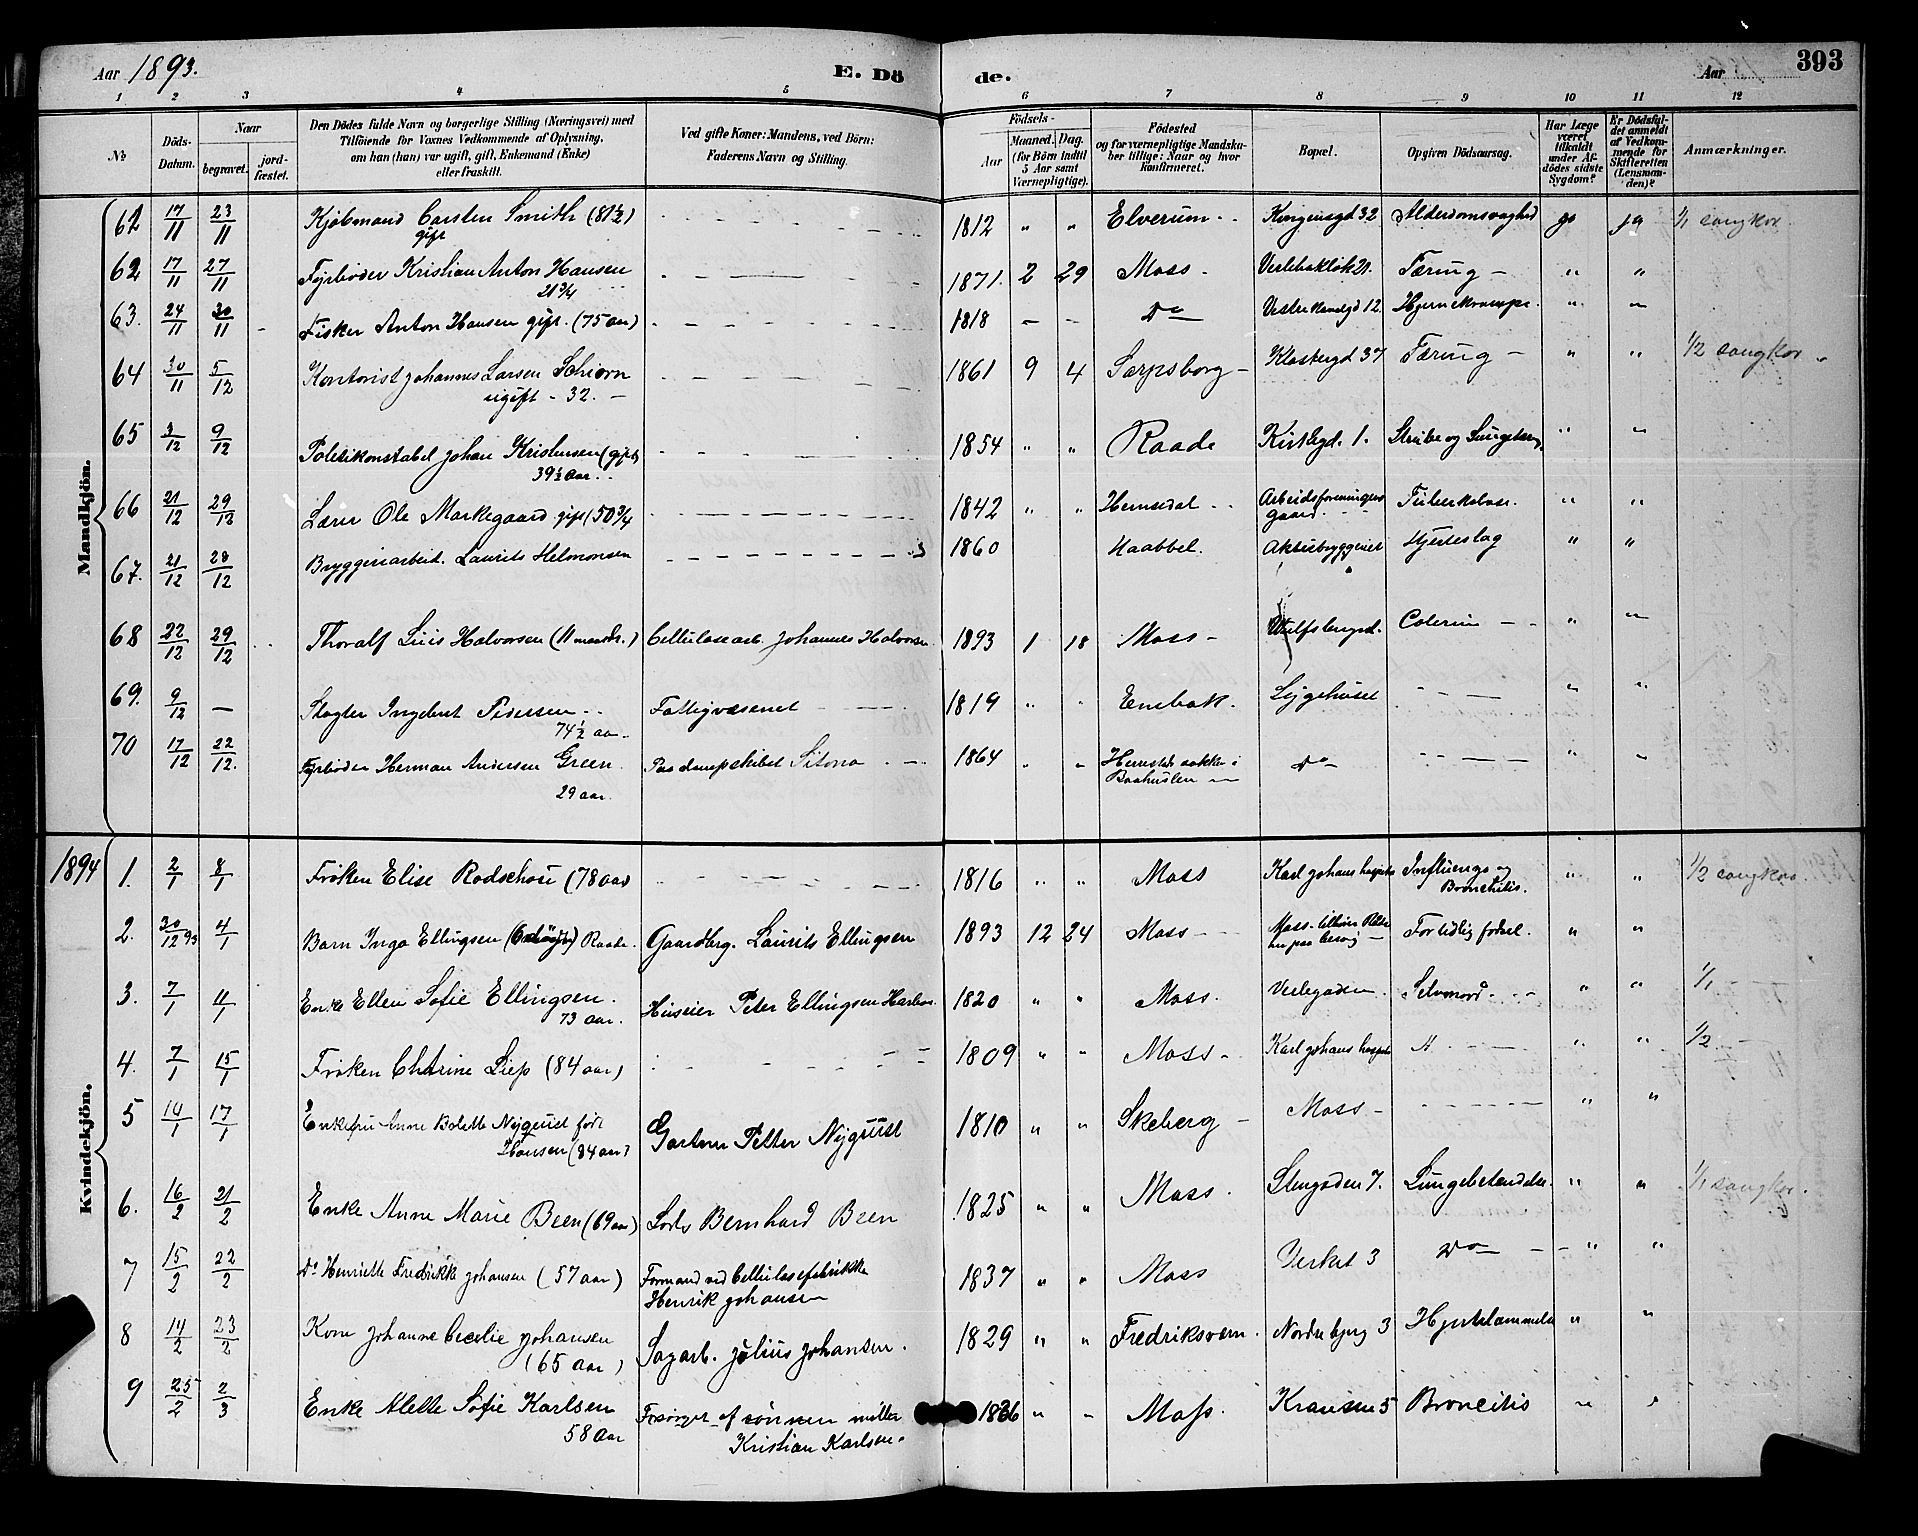 Aar 1893. E. Dö de. Aar 393
1 2 3 4 5 6 7 8 9 10 11 12
№ Döds-Datum. Naar begravet. jordfæstet. Den Dödes fulde Navn og borgerlige Stilling (Næringsvei) med Tilföiende for Voxnes Vedkommende af Oplysning, om han (hun) var ugift, gift, Enkemand (Enke) eller fraskilt. Ved gifte Koner: Mandens, ved Börn: Faderens Navn og Stilling. Födsels- Aar Maaned. Dag. (for Börn indtil 5 Aar samt Værnepligtige). Födested og for værnepligtige Mandskaber tillige: Naar og hvor konfirmeret. Bopæl. Opgiven Dödsaarsag. Har Læge været tilkaldt under Afdödes sidste Sygdom? Er Dödsfaldet anmeldt af Vedkommende for Skifteretten (Lensmanden)? Anmærkninger.
Mandkjön.
62 17/11 23/11 Kjöbmand Carsten Smith (81½) 1812 " " Elverum Kongensgd 32 Alderdomssvaghed ja ja 1/1 sangkor
gift
62 17/11 27/11 Fyrböder Kristian Anton Hansen 1871. 2 29 Moss - Tæring - " "
21 3/4
63. 24/11 30/11 Fisker Anton Hansen gift. (75 aar) 1818 - - Do 12. " "
64 30/11 5/12 Kontorist Johannes Larsen Schiørn 1861 9 4 Sarpsborg - Klostergd 37 Tæring - " " 1/2 sangkor
ugift - 32. -
65 3/12 9/12 Politikonstabel Johan Kristensen (gift) 1854 " " Raade Kirkegd. 1. Strube og " "
39½ aar.
66 21/12 29/12 Lærer Ole Markegaard gift (50 3/4 1842 " " Hemsedal Arbeidsforeningens gaard Tuberkulose. " "
67. 21/12 28/12 Bryggeriarbeid. Laurits Helmonsen 1860 Haabbel. Aktiebryggeriet Hjerteslag " "
68 22/12 29/12 Thoralf Luis Halvorsen (11 maaneder.) Cellulosearb. Johannes Halvorsen 1893 1 18 Moss - Colerin - " "
69. 9/12 - Slagter Ingebret Pedersen Fattigvæsenet 1819 " " Enebak. Sygehuset " "
74½ aar
70 17/12 22/12. Fyrböder Herman Andersen Green. Paa dampskibet Sitona 1864 " " i Baahuslen Do " "
29 aar.
Kvindekjön.
1894 1. 2/1 8/1 Fröken Elise Rodschou (78 aar) 1816 " " Moss Karl Johans hospits Influenza og Bronchitis. " " 1/2 sangkor.
2. 30/12 93 4/1 Barn Inga Ellingsen Raade. Gaardbrg. Laurits Ellingsen 1893 12 24 Moss For tidlig fodsel. " "
3. 7/1 11/1 Enke Ellen Sofie Ellingsen. Huseier Peter Ellingsen 1820 " " Moss. Verlegaden. Selvmord. " " 1/1 -
73 aar.
4. 7/1 15/1 Fröken Chatrine Liep (84 aar) 1809 " " Moss - Karl Johans hospits " " 1/2 -
5 14/1 17/1 Enkefru Anne Bolette Nyquist født Gartner Petter Nyquist 1810 " " Skeberg - Moss - " "
Hansen (84 aar)
6. 16/2 21/2 Enke Anne Marie Been (69 aar) Lods Bernhard Been 1825 " " Moss. Stengaden 7. Lungebetendelse " " 1/1 sangkor.
7 15/2 22/2 Do Henriette Fredrikke Johansen (57 aar) Formand ved Cellulosefabrikke 1837 " " Moss Verket 3 Do " "
Henrik Johansen
8 14/2 23/2 Kone Johanne Cecelie Johansen Sagarb. Julius Johansen. 1829 " " Fredriksvern. Nordre bjerg 3 " "
(65 aar)
9 25/2 2/3 Enke Alette Sofie Karlsen Forsörget af sönnen möller 1836 " " Moss. Kransen 5 Broncitis " "
58 aar Kristian Karlsen.